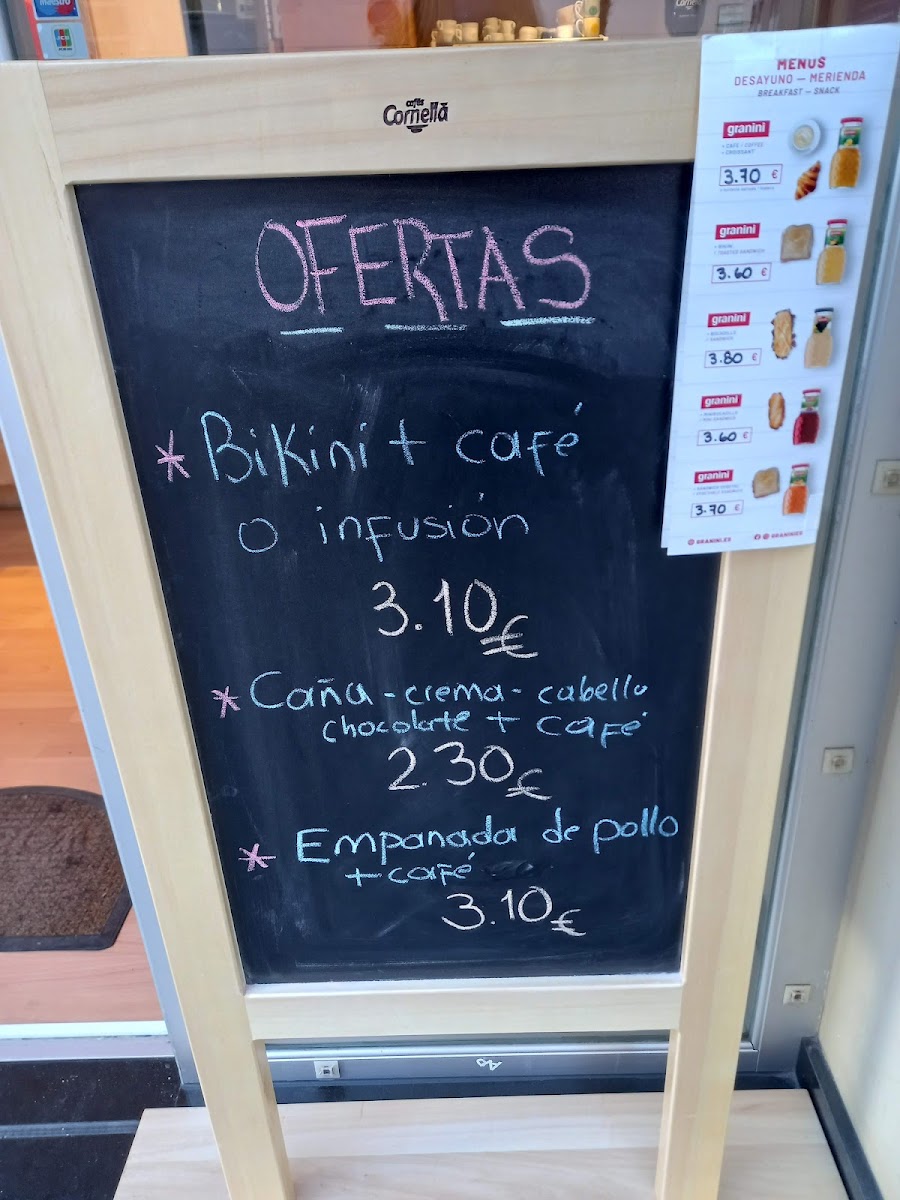 cafés
Cornellà
OFERTAS
* Bikini + café
o infusión
3.10€
* Caña - crema - cabello
chocolate + café
2.30€
* Empanada de pollo
+ café
3.10€
MENUS
DESAYUNO — MERIENDA
BREAKFAST — SNACK
granini
+ CAFÉ / COFFEE
+ CROISSANT
3.70 €
granini
+ BIKINI
/ TOASTED SANDWICH
3.60 €
granini
+ BOCADILLO
/ SANDWICH
3.80 €
granini
3.60 €
granini
3.70 €
GRANINI.ES
GRANINIES